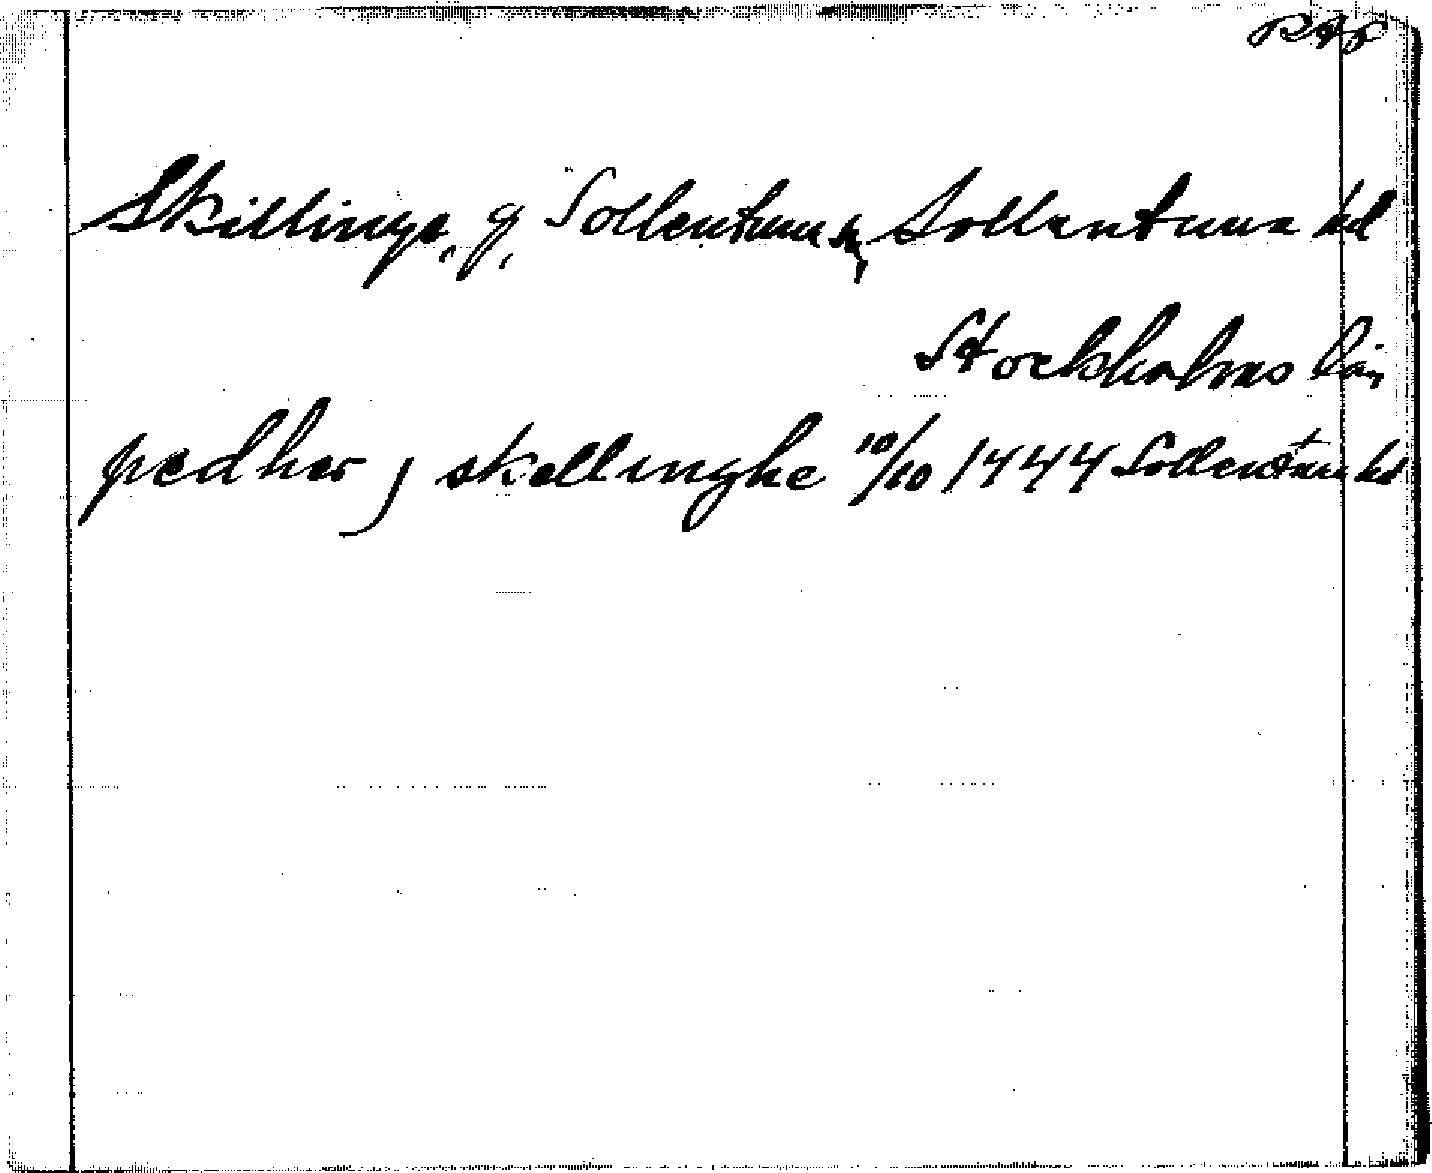 RAp
Skillinge, g, Sollentuna sn, Sollentuna hd
Stockholms län
pedher j skellinghe 10/10 1444 Sollentuna hd